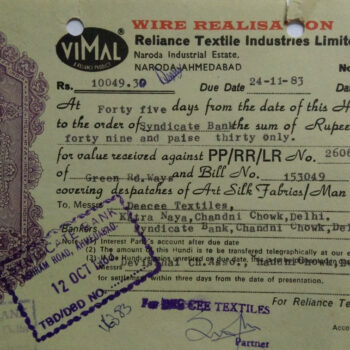 WIRE REALISATION
VIMAL
A RELIANCE PRODUCT
Reliance Textile Industries Limite
Naroda Industrial Estate,
NARODA/AHMEDABAD
No
Rs. 10049.30
Due Date 24-11-83
Da
At Forty five days from the date of this H
to the order of Syndicate Bank the sum of Rupee
forty nine and paise thirty only.
for value received against PP/RR/LR No. 2606
of Green Rd.Ways and Bill No. 153049
covering despatches of Art Silk Fabrics/Man
To Messrs Deecee Textiles,
Katra Naya, Chandni Chowk, Delhi.
Bankers Syndicate Bank, Chandni Chowk, De
Interest Par account after due date
(2) The amount of this Hundi is to be transferred telegraphically at our e
for settlement within three days from the date of presentation.
12 OCT 1983
TBD/DBD NO.
For DEE CEE TEXTILES
Partner
For Reliance Te
Acc